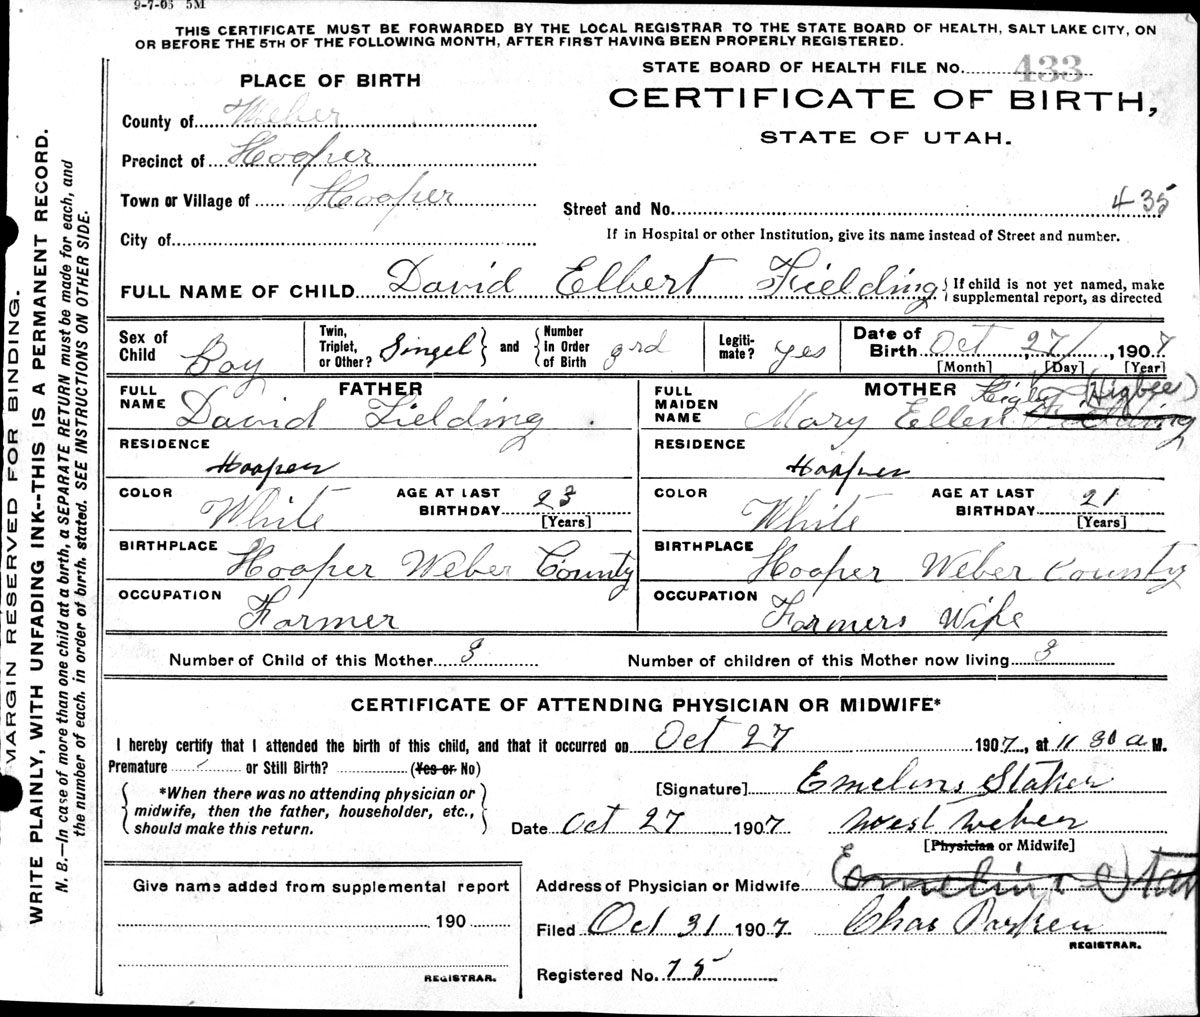 9-7-05 5M
THIS CERTIFICATE MUST BE FORWARDED BY THE LOCAL REGISTRAR TO THE STATE BOARD OF HEALTH, SALT LAKE CITY, ON
OR BEFORE THE 5TH OF THE FOLLOWING MONTH, AFTER FIRST HAVING BEEN PROPERLY REGISTERED.
MARGIN RESERVED FOR BINDING.
WRITE PLAINLY, WITH UNFADING INK--THIS IS A PERMANENT RECORD.
N. B.—In case of more than one child at a birth, a SEPARATE RETURN must be made for each, and
the number of each. in order of birth. stated. SEE INSTRUCTIONS ON OTHER SIDE.
PLACE OF BIRTH
County of Weber
Precinct of Hooper
Town or Village of Hooper
City of
STATE BOARD OF HEALTH FILE No. 433
CERTIFICATE OF BIRTH,
STATE OF UTAH.
Street and No. 435
If in Hospital or other Institution, give its name instead of Street and number.
FULL NAME OF CHILD David Elbert Fielding { If child is not yet named, make
supplemental report, as directed
Sex of Child Boy
Twin, Triplet, or Other? Singel } and { Number In Order of Birth 3rd
Legiti-mate? yes
Date of Birth Oct 27, 1907
[Month] [Day] [Year]
FATHER
FULL NAME David Fielding
RESIDENCE
Hooper
COLOR White AGE AT LAST BIRTHDAY 23 [Years]
BIRTHPLACE Hooper Weber County
OCCUPATION Farmer
MOTHER
FULL MAIDEN NAME Mary Ellen Fielding Higby (Higbee)
RESIDENCE
Hooper
COLOR White AGE AT LAST BIRTHDAY 21 [Years]
BIRTHPLACE Hooper Weber County
OCCUPATION Farmers Wife
Number of Child of this Mother 3 Number of children of this Mother now living 3
CERTIFICATE OF ATTENDING PHYSICIAN OR MIDWIFE*
I hereby certify that I attended the birth of this child, and that it occurred on Oct 27 1907, at 11 30 a M.
Premature or Still Birth? (Yes or No)
*When there was no attending physician or
midwife, then the father, householder, etc.,
should make this return.
[Signature] Emeline Staker
Date Oct 27 1907 West Weber
[Physician or Midwife]
Address of Physician or Midwife Emeline Stak
Filed Oct 31 1907 Chas Parker
REGISTRAR.
Registered No. 75
Give name added from supplemental report
190
REGISTRAR.